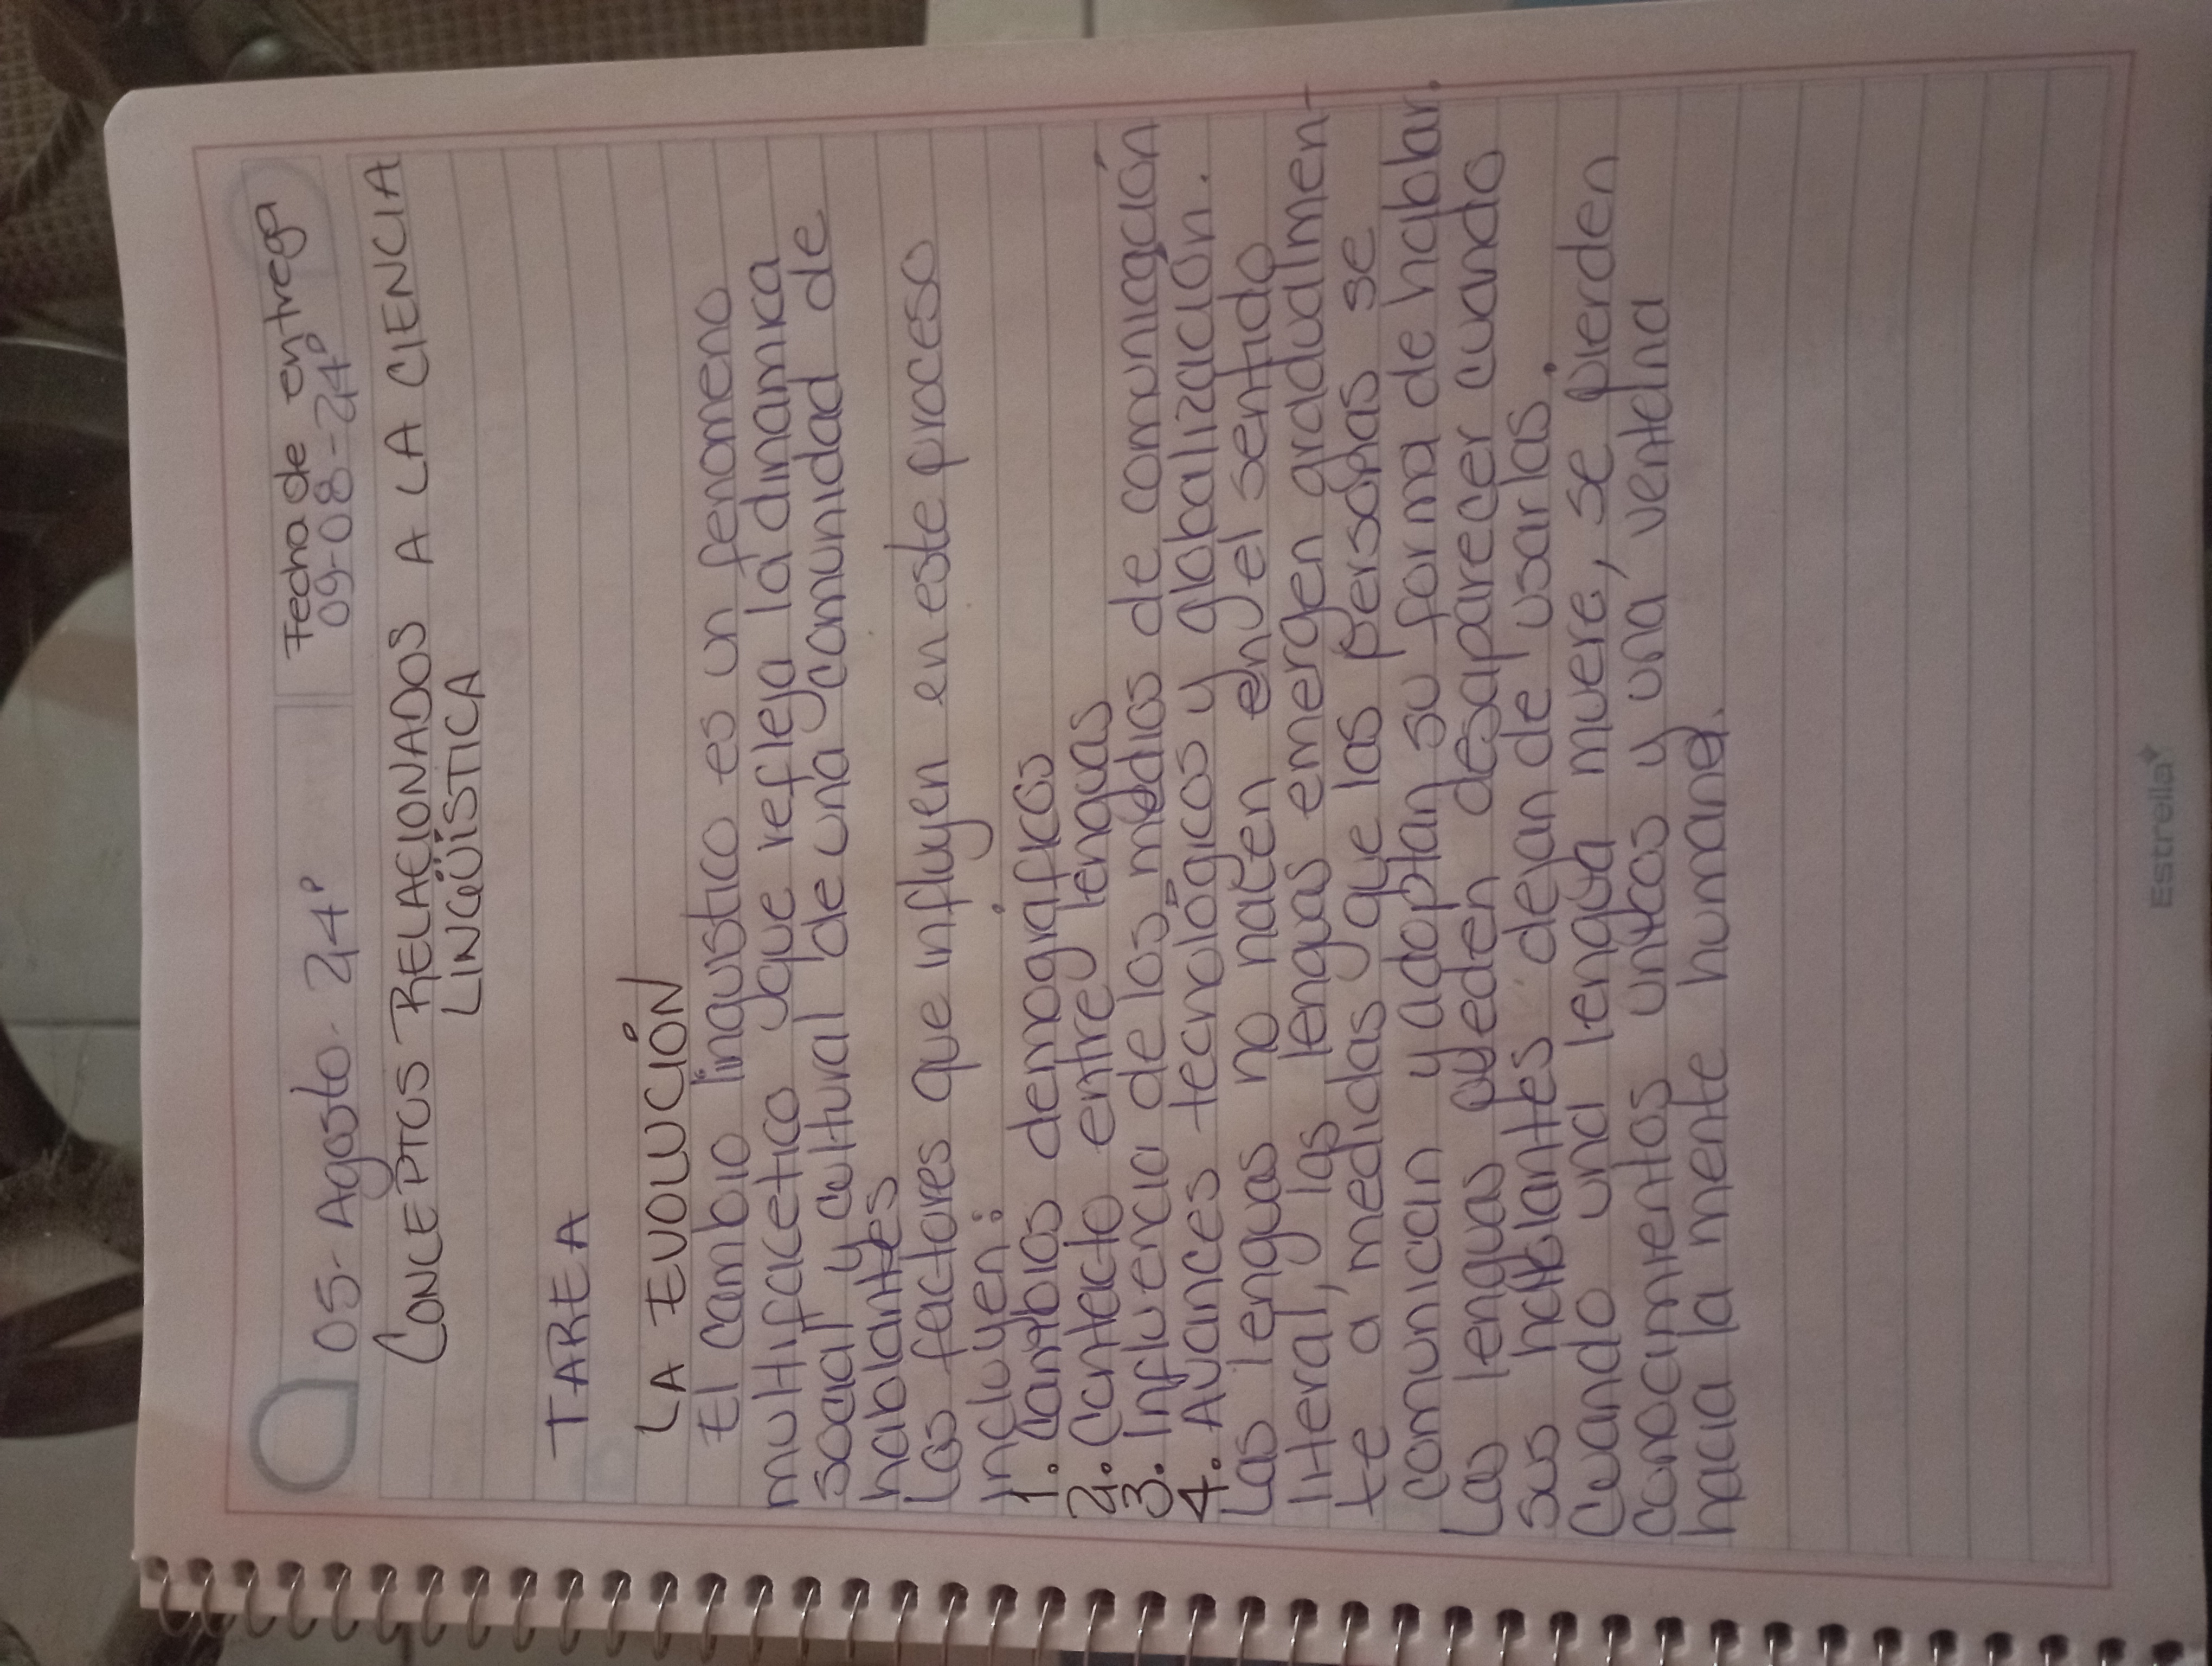 05-Agosto-24°
Fecha de entrega
09-08-24°
CONCEPTOS RELACIONADOS A LA CIENCIA
LINGÜÍSTICA
TAREA
LA EVOLUCIÓN
El cambio linguistico es un fenomeno
multifacetico que refleja la dinamica
social y cultural de una comunidad de
hablantes
Los factores que influyen en este proceso
incluyen:
1. Cambios demográficos
2. Contacto entre lenguas
3. Influencia de los medios de comunicación
4. Avances tecnológicos y globalización.
Las lenguas no nacen en el sentido
literal, las lenguas emergen gradualmen-
te a medidas que las personas se
comunican y adoptan su forma de hablar.
Las lenguas pueden desaparecer cuando
sus hablantes dejan de usarlas.
Cuando una lengua muere, se pierden
conocimientos unicos y una ventana
hacia la mente humana.
Estrella